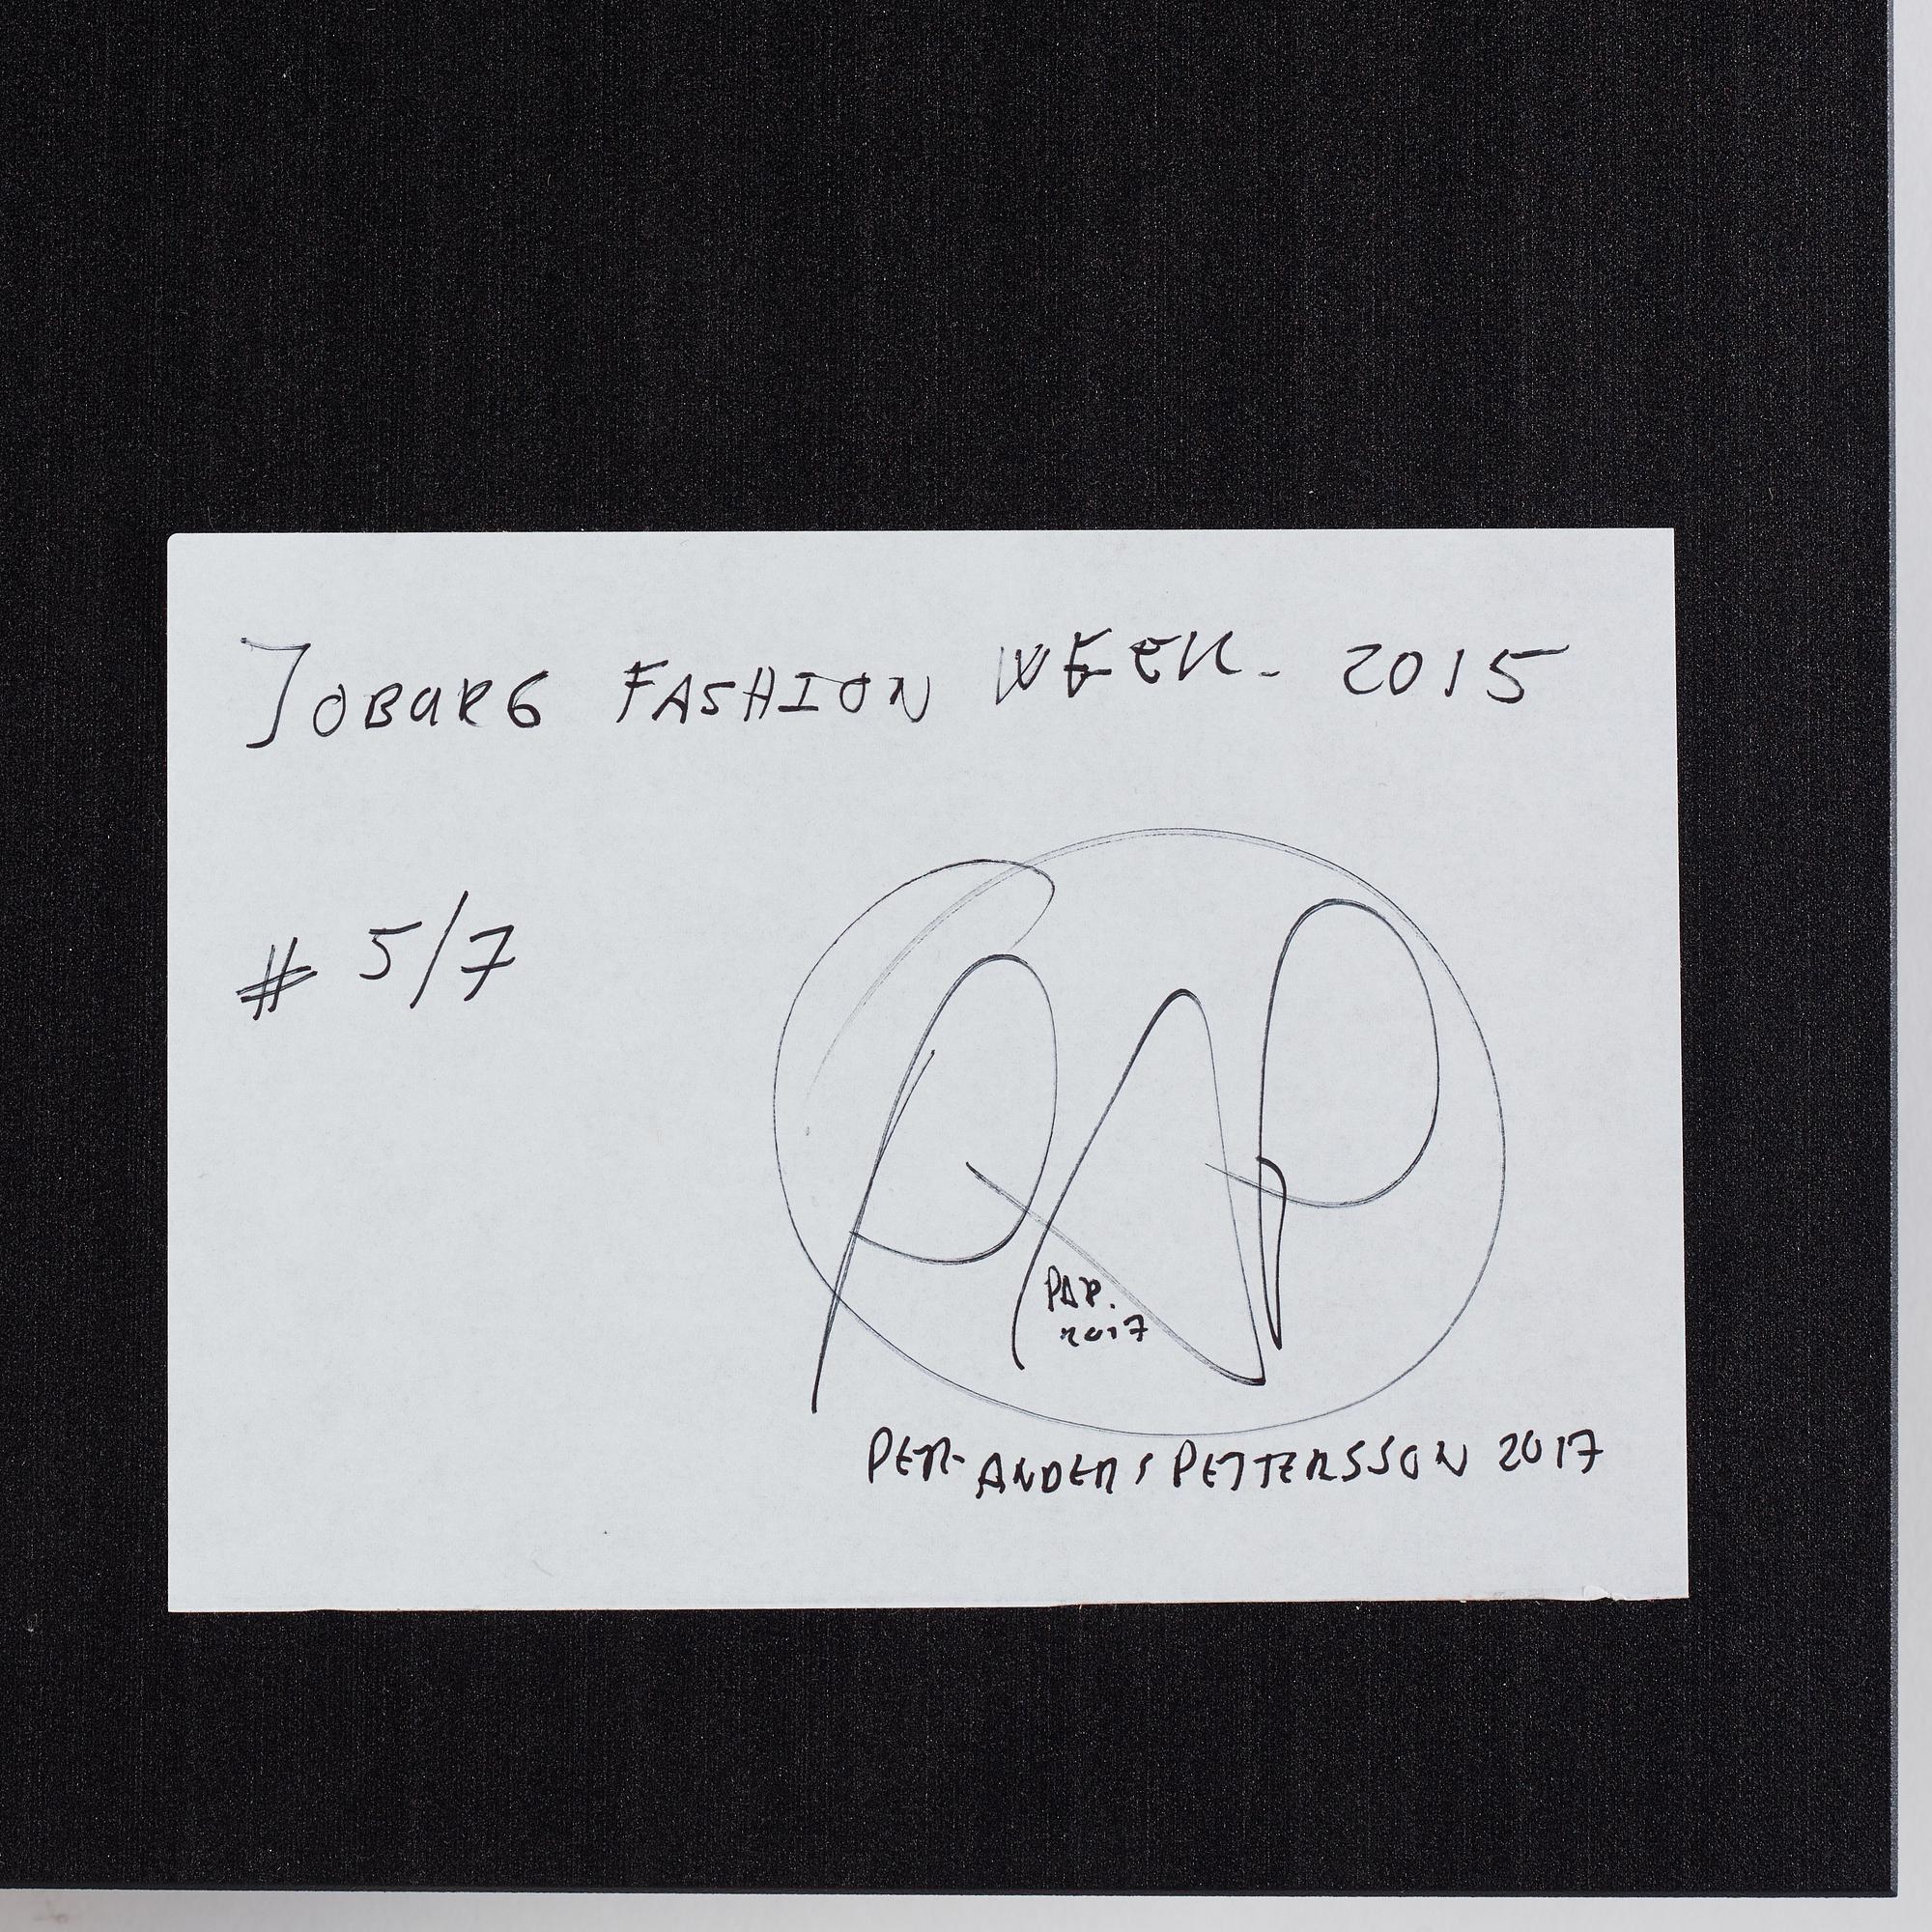 JOBURG FASHION WEEK - 2015
# 5/7
PAP
PAP.
2017
PER-ANDERS PETTERSSON 2017